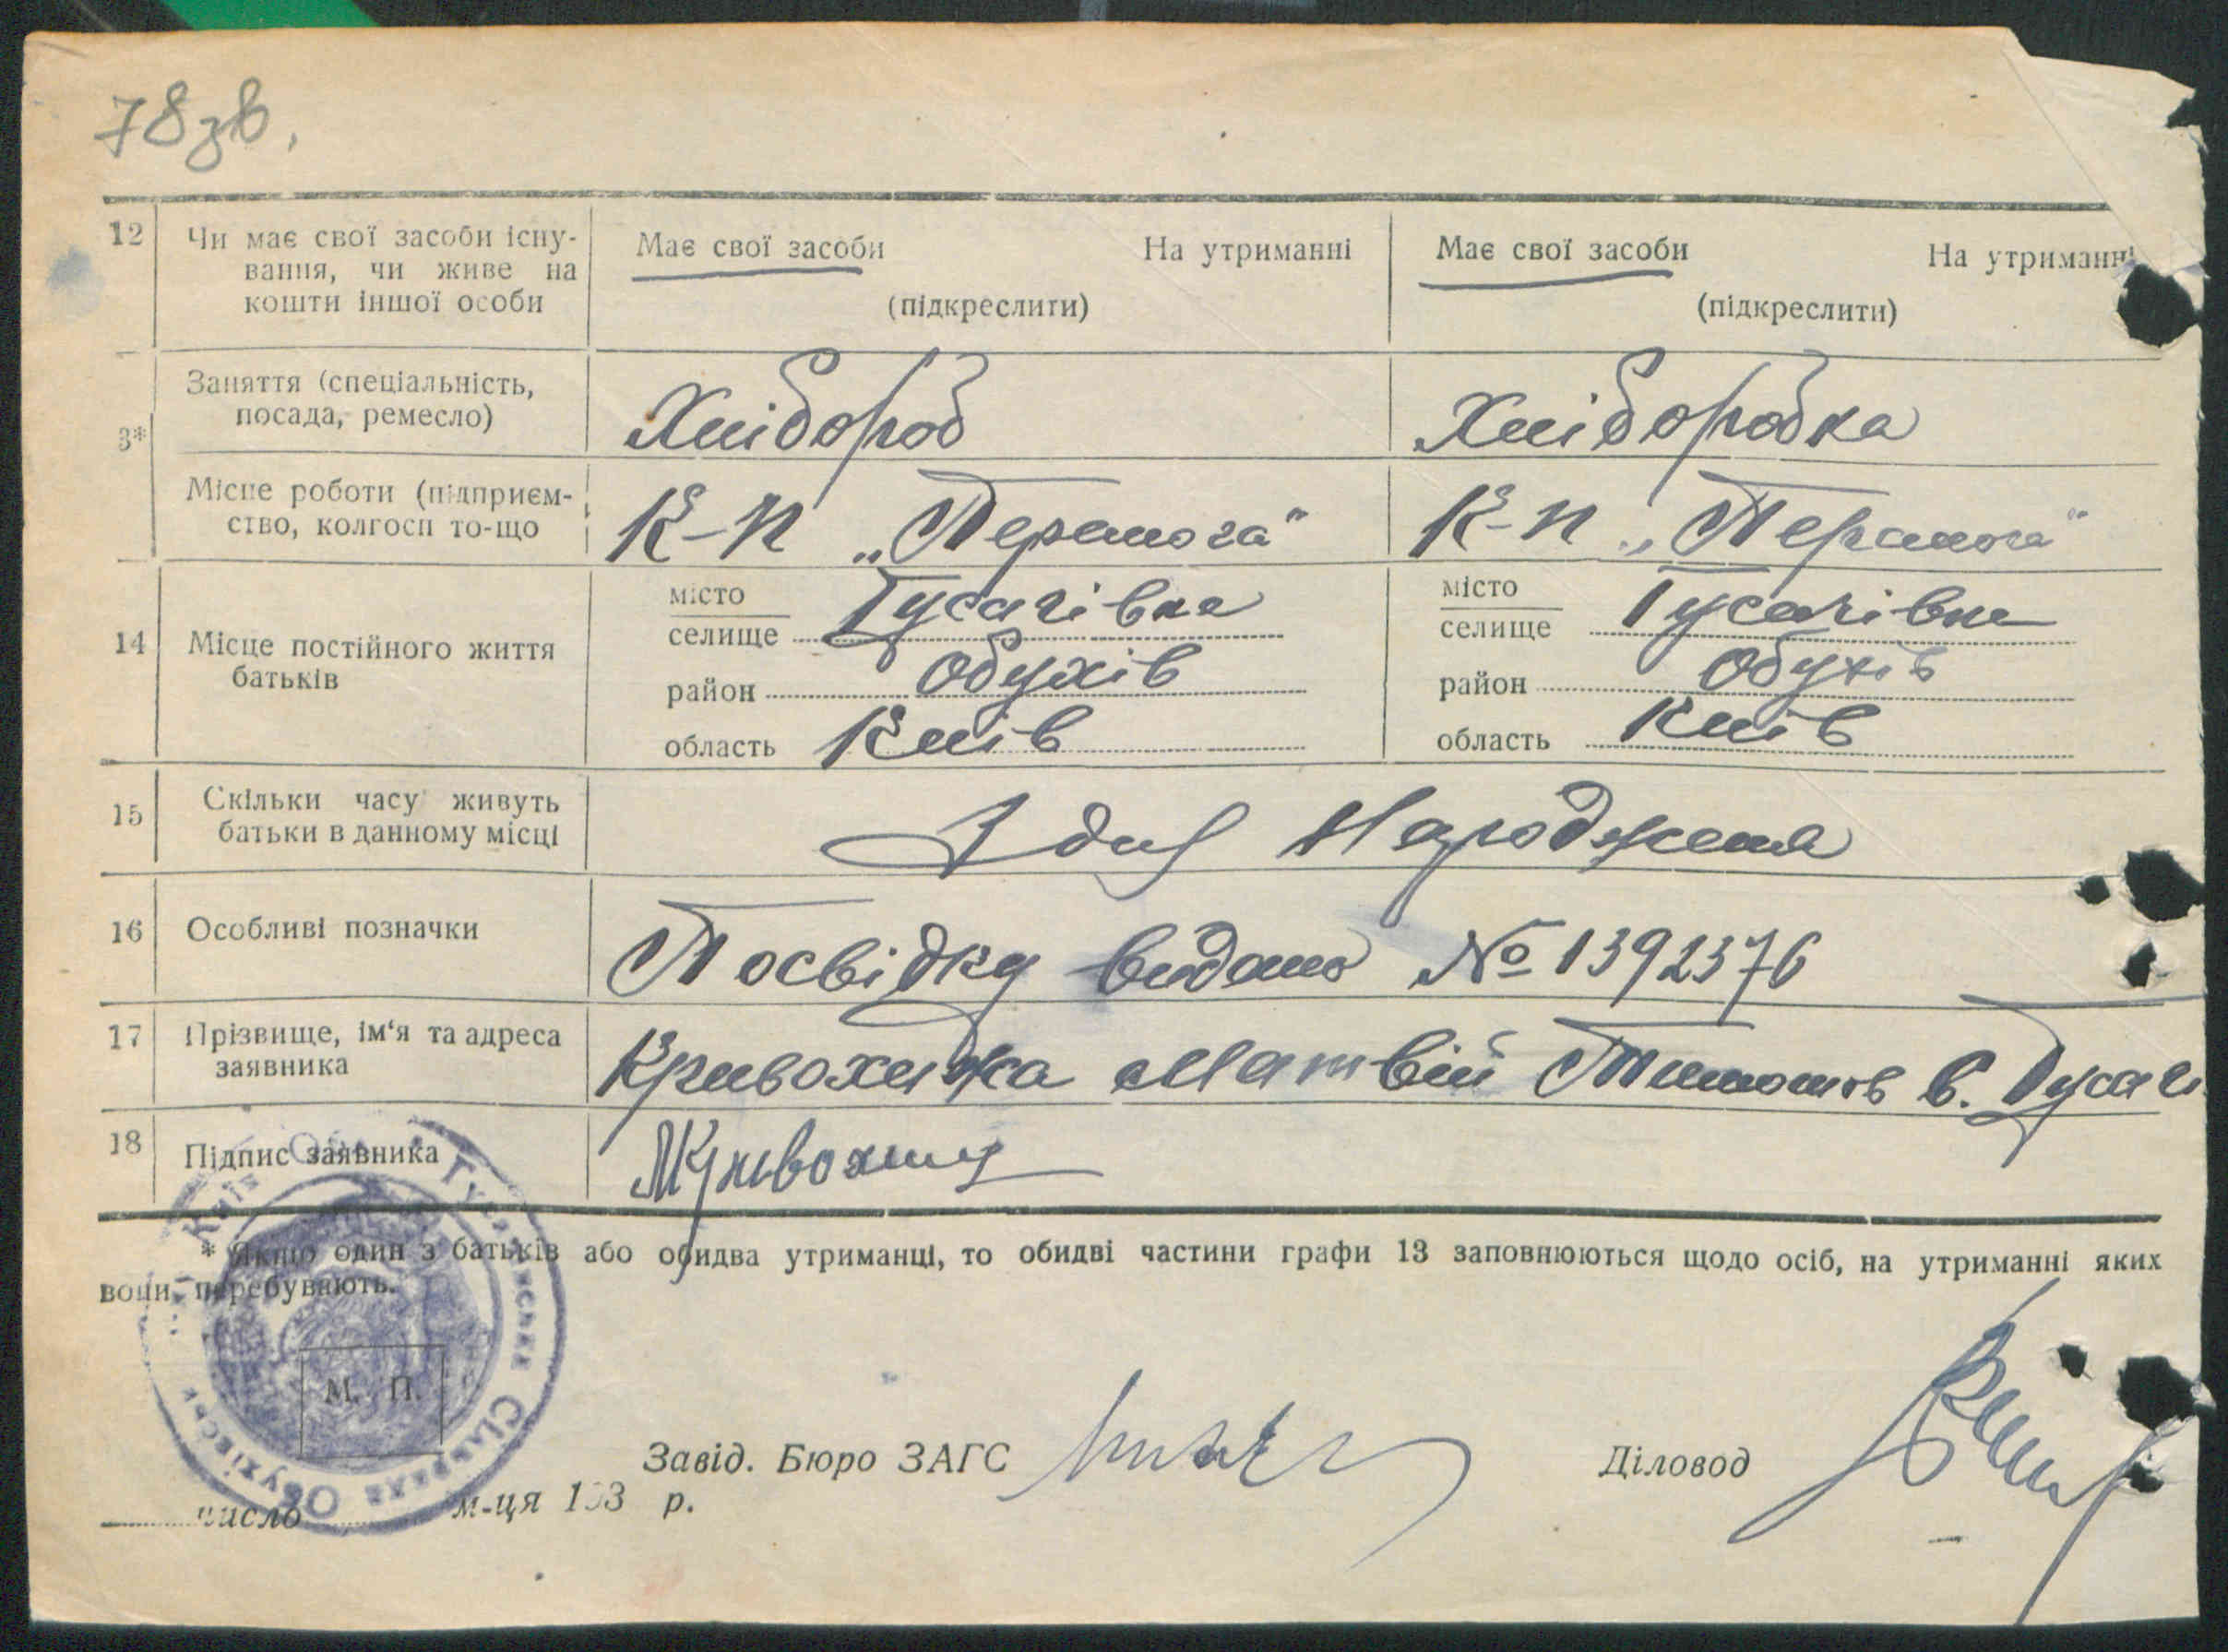 78зв.
12 Чи має свої засоби існу- Має свої засоби На утриманні Має свої засоби На утриманні
вання, чи живе на
кошти іншої особи (підкреслити) (підкреслити)
Заняття (спеціальність,
посада, ремесло) Хлібороб Хлібородка
3*
Місце роботи (підприєм-
ство, колгосп то-що К-п „Перемога" К-п „Перемога"
14 Місце постійного життя
батьків
місто
селище Гусачівка
район Обухів
область Київ
місто
селище Гусачівка
район Обухів
область Київ
15 Скільки часу живуть
батьки в данному місці З дня Народження
16 Особливі позначки Посвідку видано № 1392376
17 Прізвище, ім'я та адреса
заявника Кривохижа Матвій в. Гусачі
18 Підпис заявника МКривохижа
* Якщо один з батьків або обидва утриманці, то обидві частини графи 13 заповнюються щодо осіб, на утриманні яких
вони перебувають.
М. П.
Завід. Бюро ЗАГС Діловод
число м-ця 193 р.